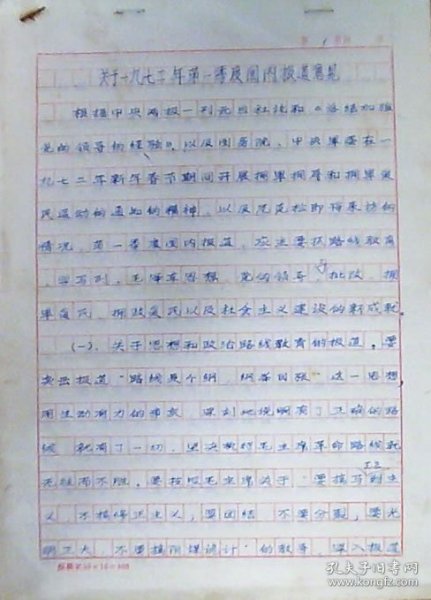 关于一九七二年第一季度国内报道意见
根据中央两报一刊元旦社论和《
党的领导的经验》,以及国务院、中央军委在一
九七二年新年春节期间开展拥军拥属和拥军爱
民运动的通知的精神,以及尼克松即将来访的
情况,第一季度国内报道,应主要抓路线教育
、学马列、毛泽东思想、党的领导、批队、拥
军爱民、拥政爱民以及社会主义建设的新成就。
(一)、关于思想和政治路线教育的报道。要
突出报道"路线是个纲,纲举目张"这一思想,
用生动有力的事实,深刻地说明有了正确的路
线,就有了一切,坚决执行毛主席革命路线就
无往而不胜。要按照毛主席关于"要搞马列主
义,不搞修正主义;要团结,不要分裂;要光
明正大,不要搞阴谋诡计"的教导,深入报道
孔夫子旧书网
www.kongfz.com